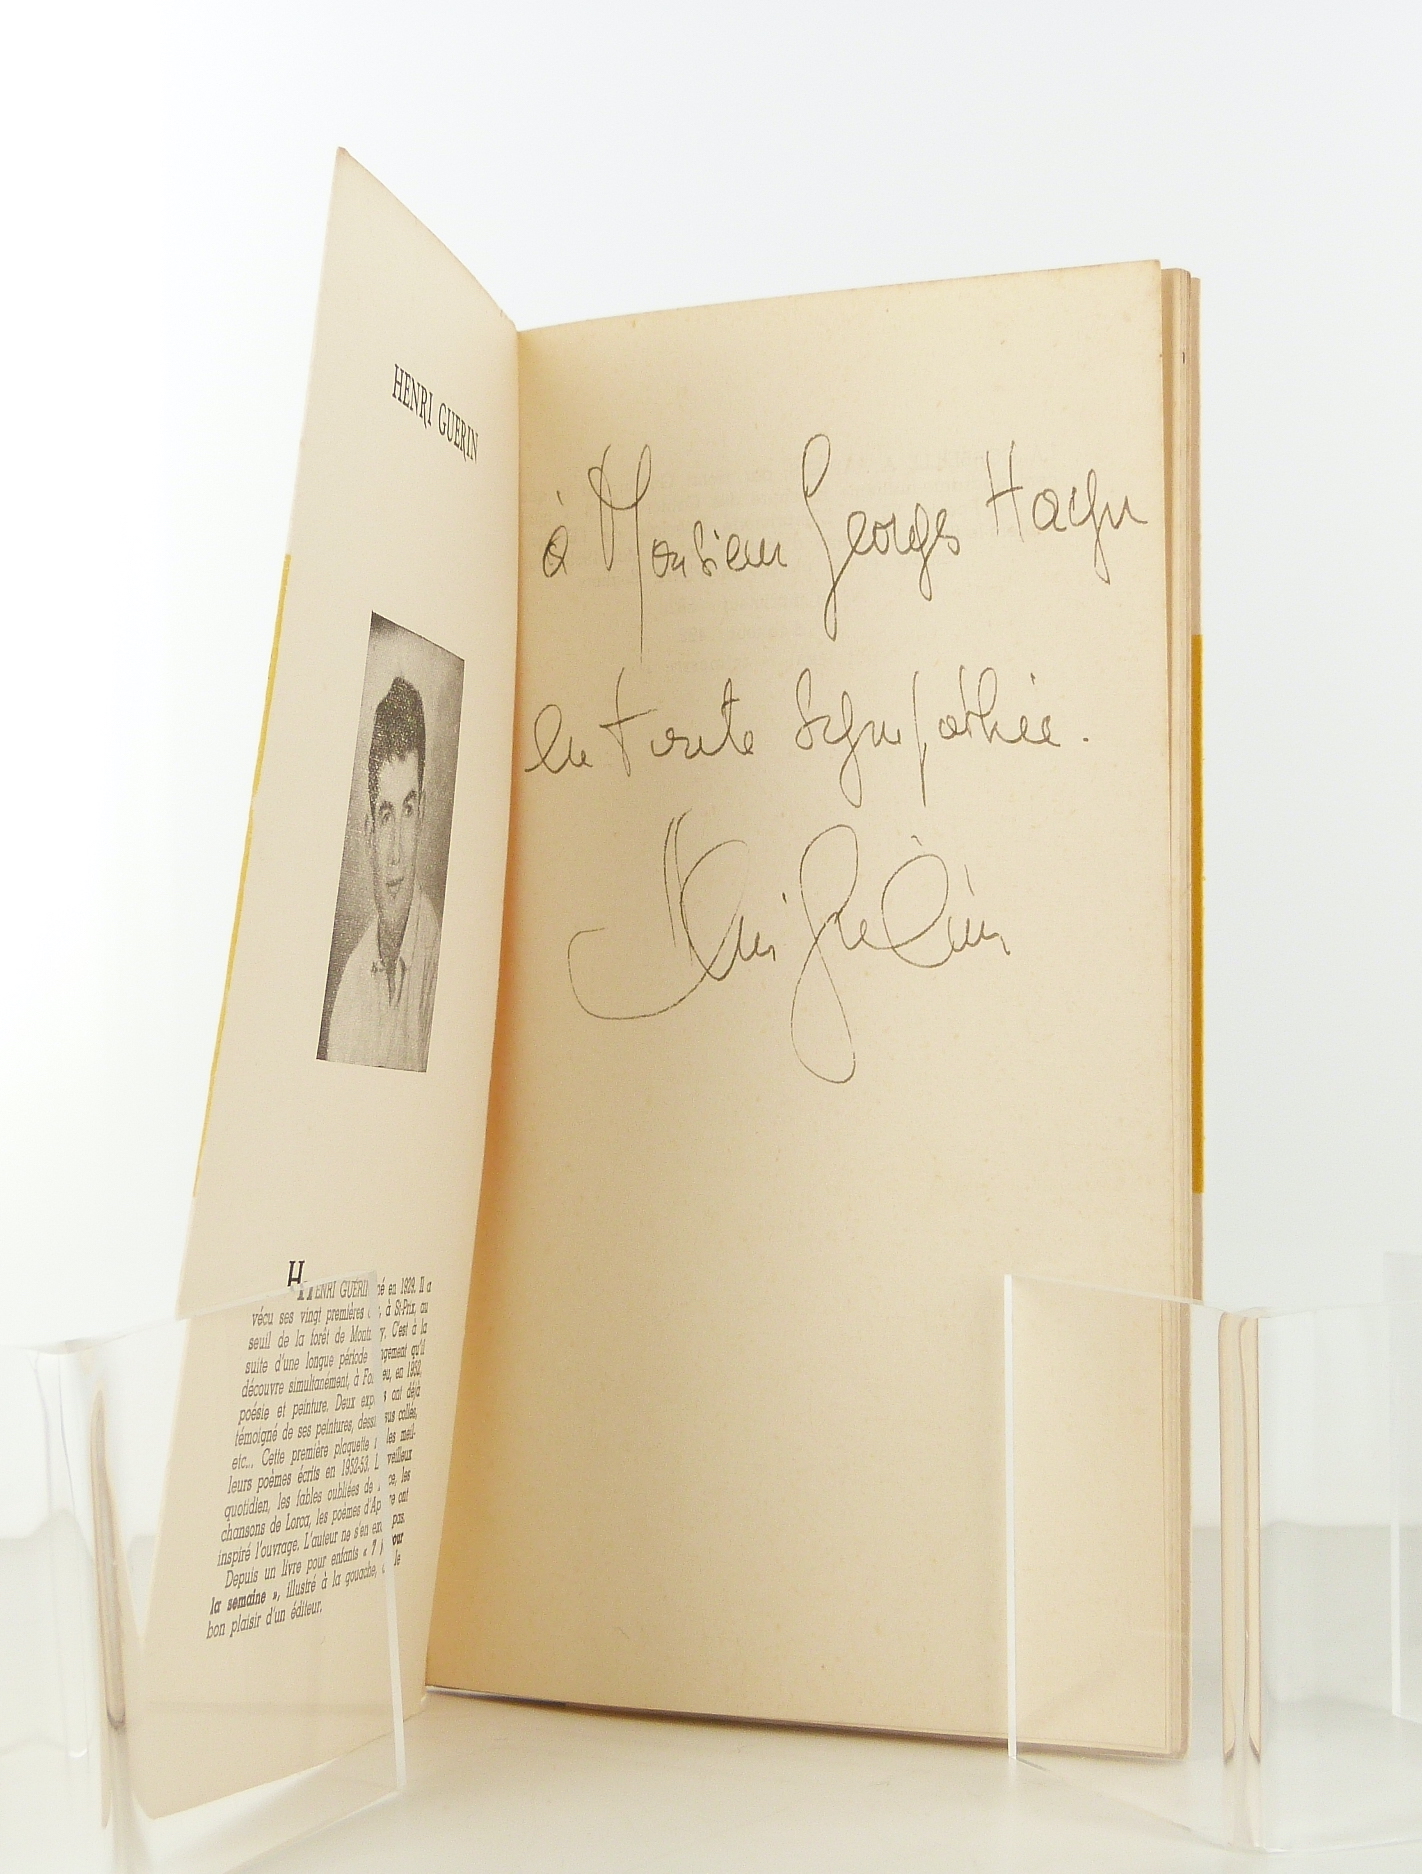 HENRI GUERIN
HENRI GUÉRIN né en 1929. Il a
vécu ses vingt premières à St-Prix, au
seuil de la forêt de C'est à la
suite d'une longue période qu'il
découvre simultanément, à en 1952,
poésie et peinture. Deux ont déjà
témoigné de ses peintures, collés,
etc... Cette première plaquette les meil-
leurs poèmes écrits en 1952-53.
quotidien, les fables oubliées de les
chansons de Lorca, les poèmes ont
inspiré l'ouvrage. L'auteur ne s'en pas.
Depuis un livre pour enfants « 7 pour
la semaine », illustré à la gouache, le
bon plaisir d'un éditeur.
à Monsieur Georges
en toute sympathie.
Henri Guérin